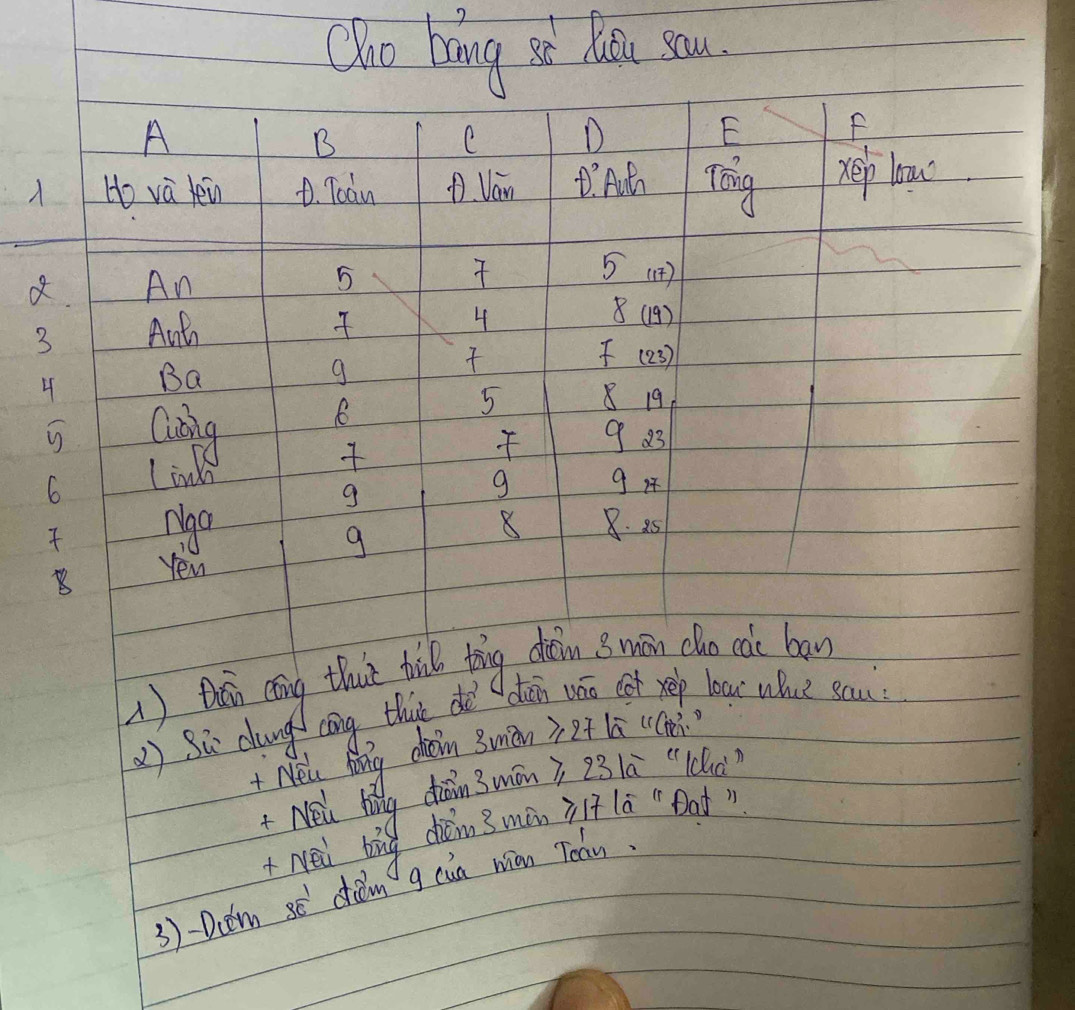 Cho bảng số liệu sau.
A B C D E F
1 Họ và tên Đ. Toán Đ. Văn Đ. Anh Tổng xếp loại
2 An 5 7 5 (17)
3 Anh 7 4 8 (19)
4 Ba 9 7 7 (23)
5 Cường 6 5 8 19
6 Linh 7 7 9 23
7 Nga 9 9 9 27
8 Yến 9 8 8. 25
1) Điền công thức tính tổng điểm 3 môn cho các bạn
2) Sử dụng công thức để điền vào cột xếp loại như sau:
+ Nếu tổng điểm 3 môn ≥ 27 là "Giỏi"
+ Nếu tổng điểm 3 môn ≥ 23 là "Khá"
+ Nếu tổng điểm 3 môn ≥ 17 là "Đạt".
3) - Đếm số điểm 9 của môn Toán.